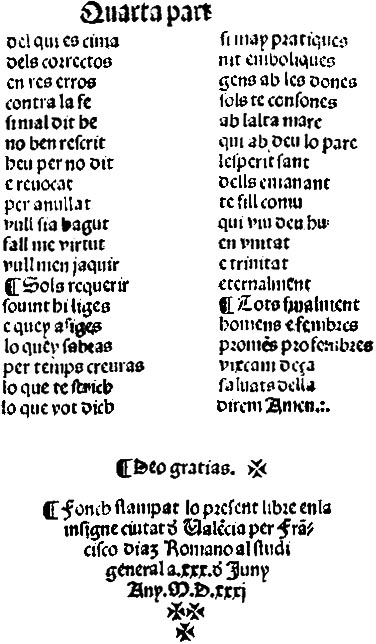 Quarta part
del qui es cima
dels correctos
en res erros
contra la fe
si mal dit be
no ben rescrit
heu per no dit
e reuocat
per anullat
vull sia hagut
fall me virtut
vull men jaquir
¶ Sols requerir
souint hi liges
e quey afiges
lo quey sabeas
per temps creuras
lo que te scrich
lo que vot dich
si may pratiques
nit emboliques
gens ab les dones
sols te consones
ab lalta mare
qui ab deu lo pare
lesperit sant
dells emanant
te fill comu
qui viu deu hu
en vnitat
e trinitat
eternalment
¶ Tots finalment
homens e fembres
promēs pro fembres
viscam deça
saluats della
direm Amen.:.
¶ Deo gratias. ✠
¶ Fonch stampat lo present libre enla
insigne ciutat đ Ualēcia per Frā-
cisco diaz Romano al studi
general a.xxx.đ Juny
Any.M.D.xxxj